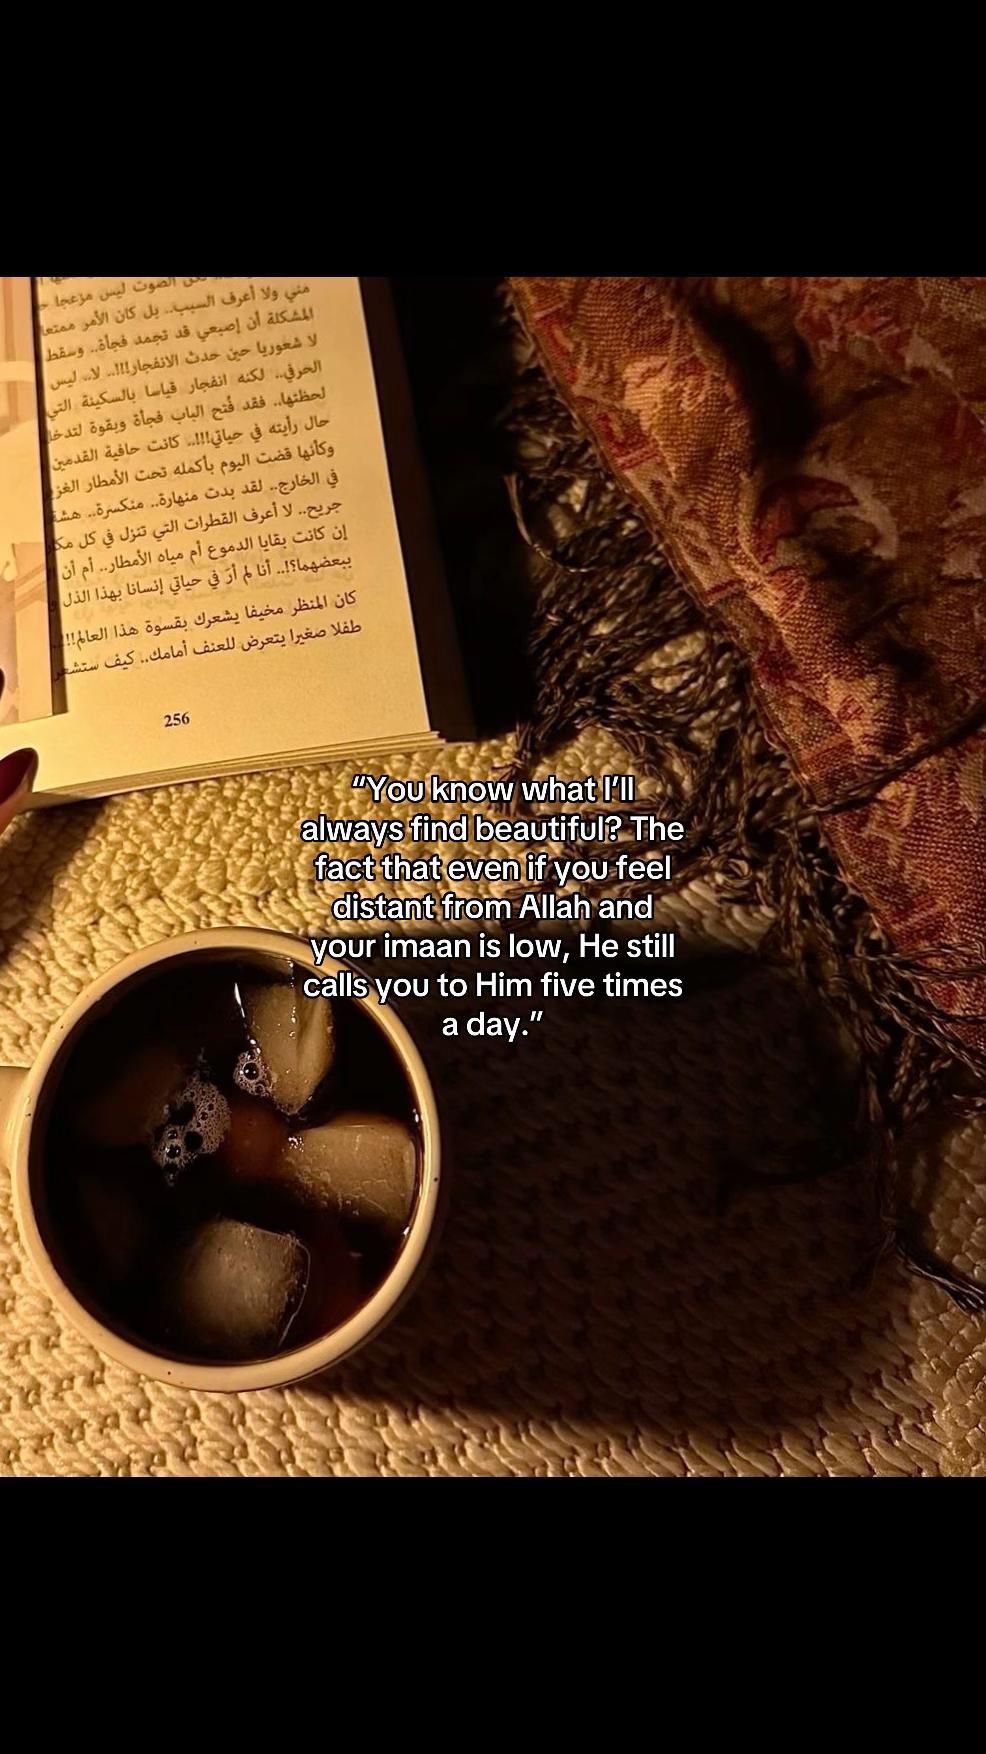 لكن الصوت ليس مزعجا
مني ولا أعرف السبب.. بل كان الأمر ممتعا
المشكلة أن إصبعي قد تجمد فجأة.. وسقط
لا شعوريا حين حدث الانفجار!!!.. لا.. ليس
الحرفي.. لكنه انفجار قياسا بالسكينة التي
لحظتها.. فقد فُتح الباب فجأة وبقوة لتدخل
حال رأيته في حياتي!!!.. كانت حافية القدمين
وكأنها قضت اليوم بأكمله تحت الأمطار
في الخارج.. لقد بدت منهارة.. منكسرة.. هشة
جريح.. لا أعرف القطرات التي تنزل في كل
إن كانت بقايا الدموع أم مياه الأمطار.. أم أن
ببعضهما؟!.. أنا لم أرَ في حياتي إنسانا بهذا الذل
كان المنظر مخيفا يشعرك بقسوة هذا العالم!!!..
طفلا صغيرا يتعرض للعنف أمامك.. كيف ستشعر
256
“You know what I’ll
always find beautiful? The
fact that even if you feel
distant from Allah and
your imaan is low, He still
calls you to Him five times
a day.”